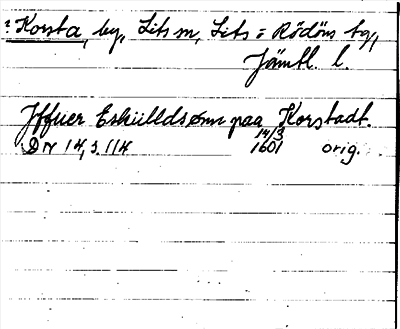 ? Korsta, by, Lits sn, Lits o Rödöns tg,
Jämtl. l.
Iffuer Eskiilldsønn paa Korstadt.
14/3
DN 14, s. 114 1601 orig.